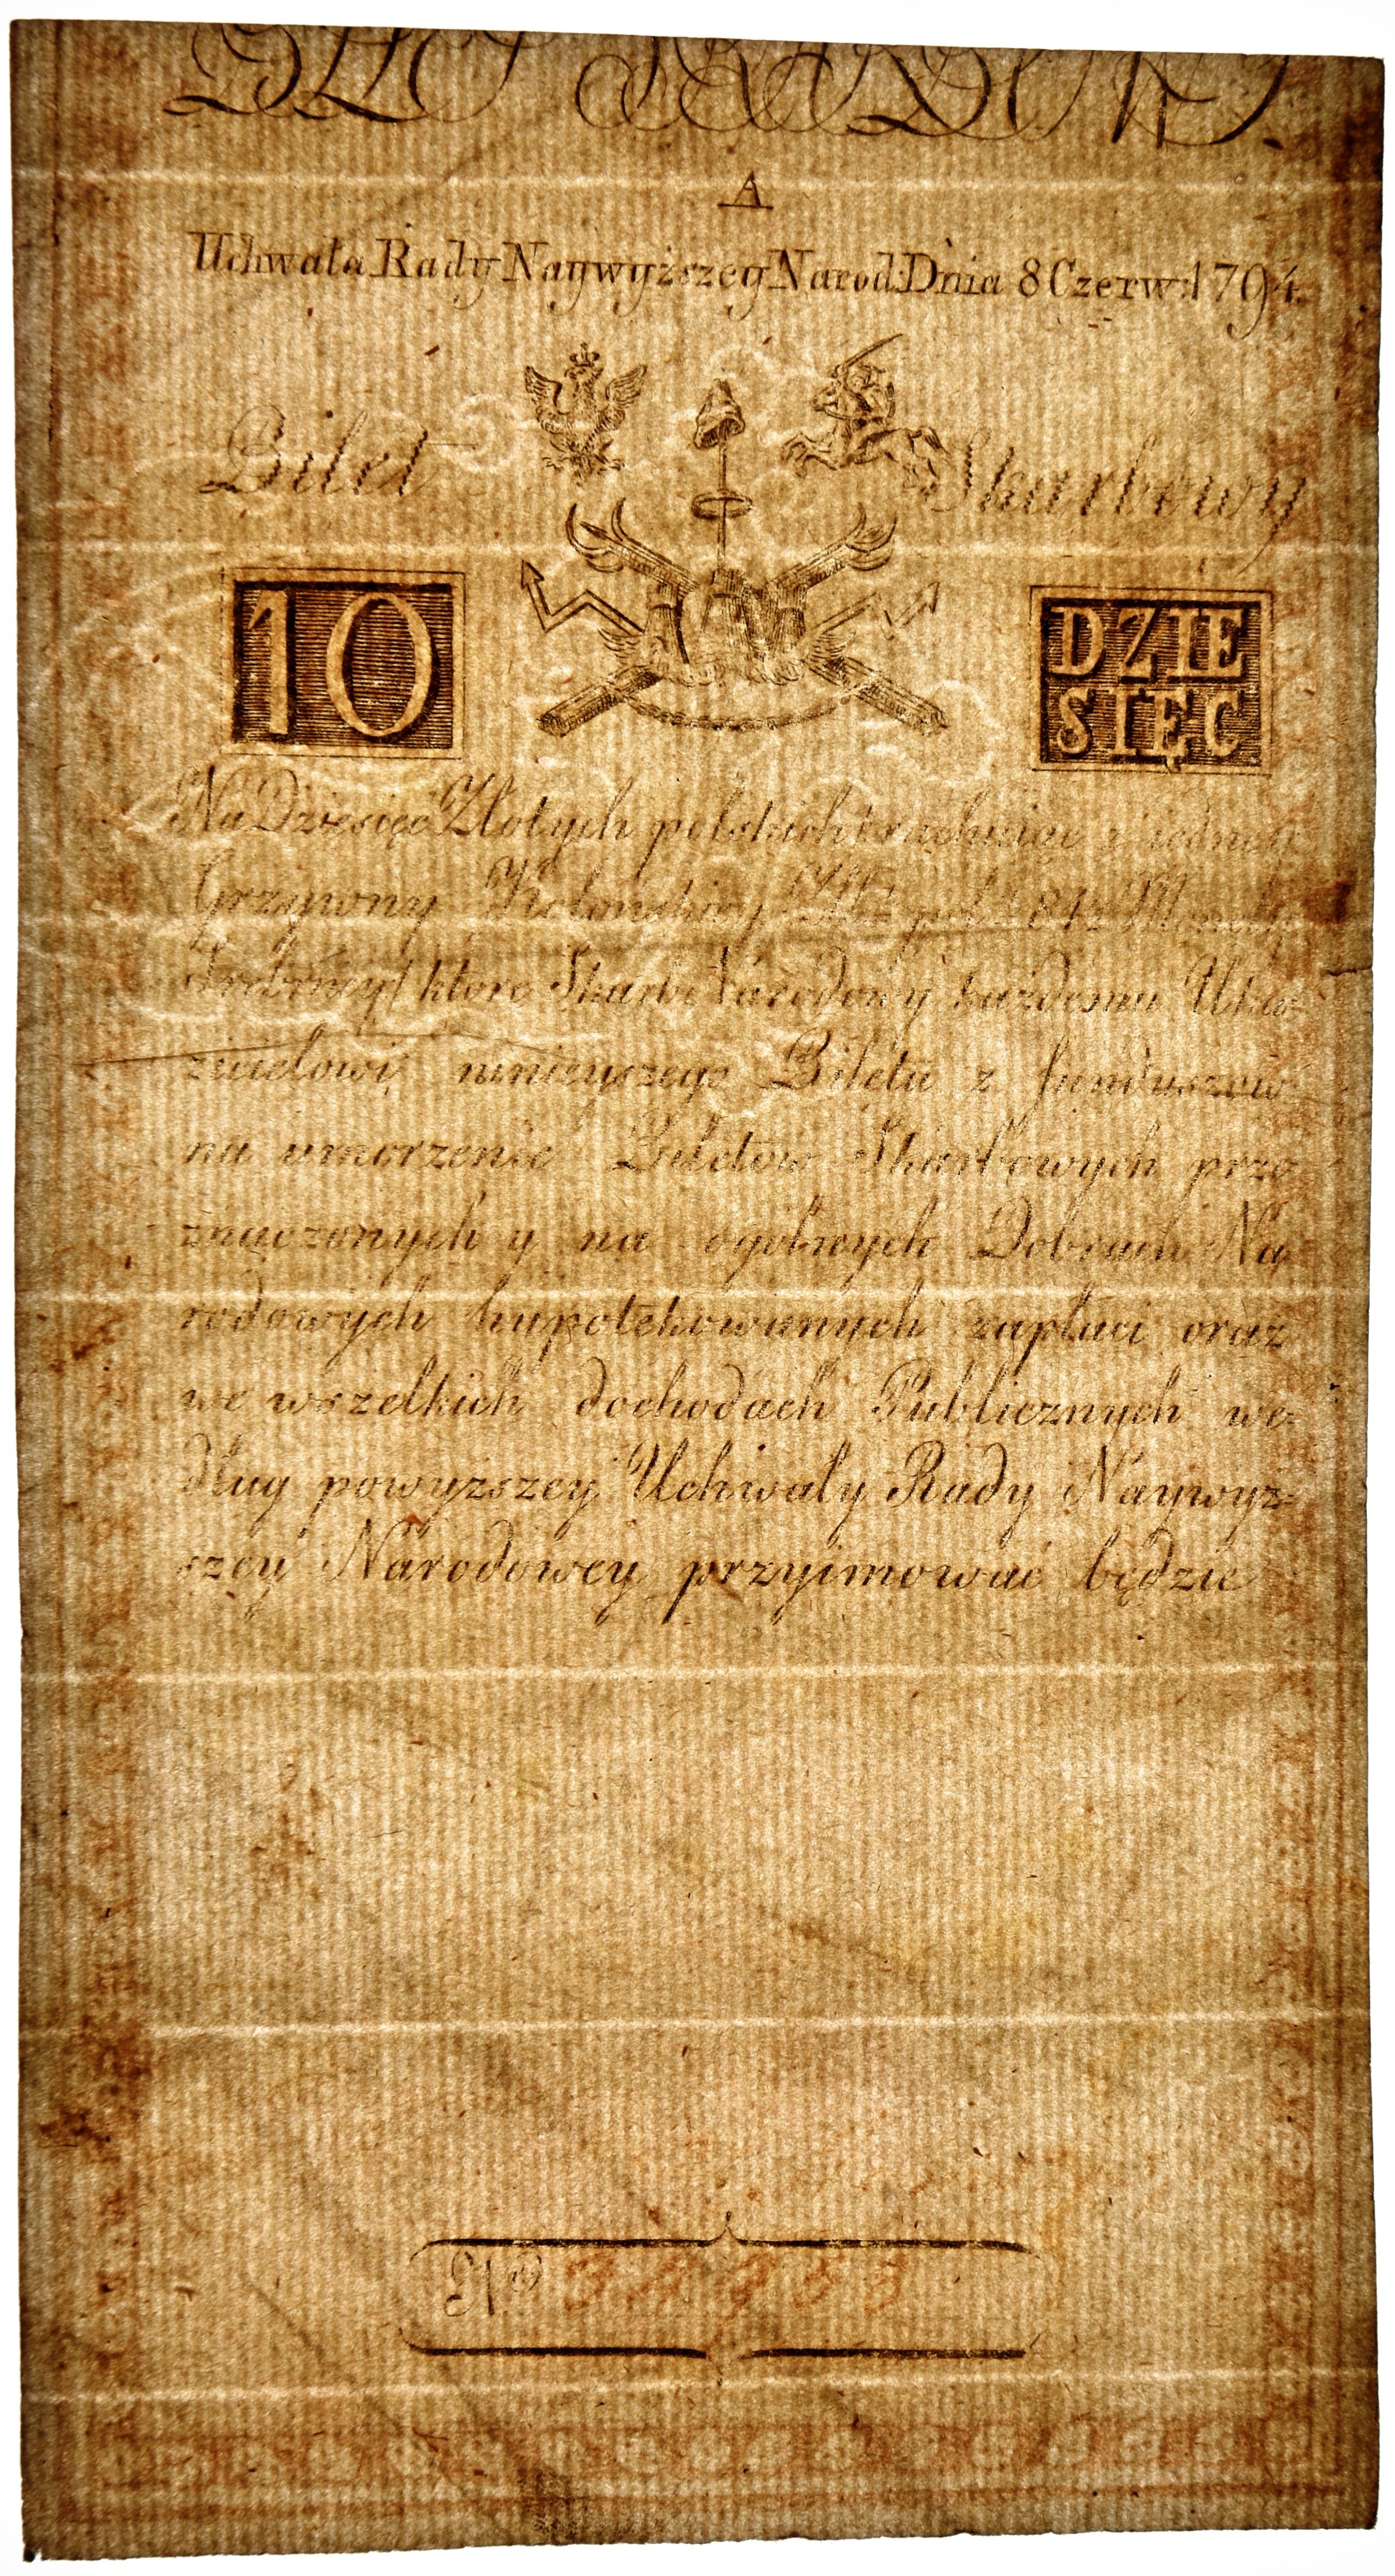 A
Uchwała Rady Naywyższey Narod: Dnia 8 Czerw: 1794.
Bilet Skarbowy
10
DZIE
SIĘC
Na Dziesięc Złotych polskich rachuiąc z iedney
Grzywny Kolonskiey Złł: pol: 84½ Monety
Srebrney/ ktore Skarb Narodowy każdemu Uka-
zicielowi ninieyszego Biletu z funduszow
na umorzenie Biletow Skarbowych prze
znaczonych y na ogolnych Dobrach Na
rodowych hypotekowanych zapłaci oraz
we wszelkich dochodach Publicznych we-
dług powyższey Uchwały Rady Naywyż-
szey Narodowey przyimować będzie
No